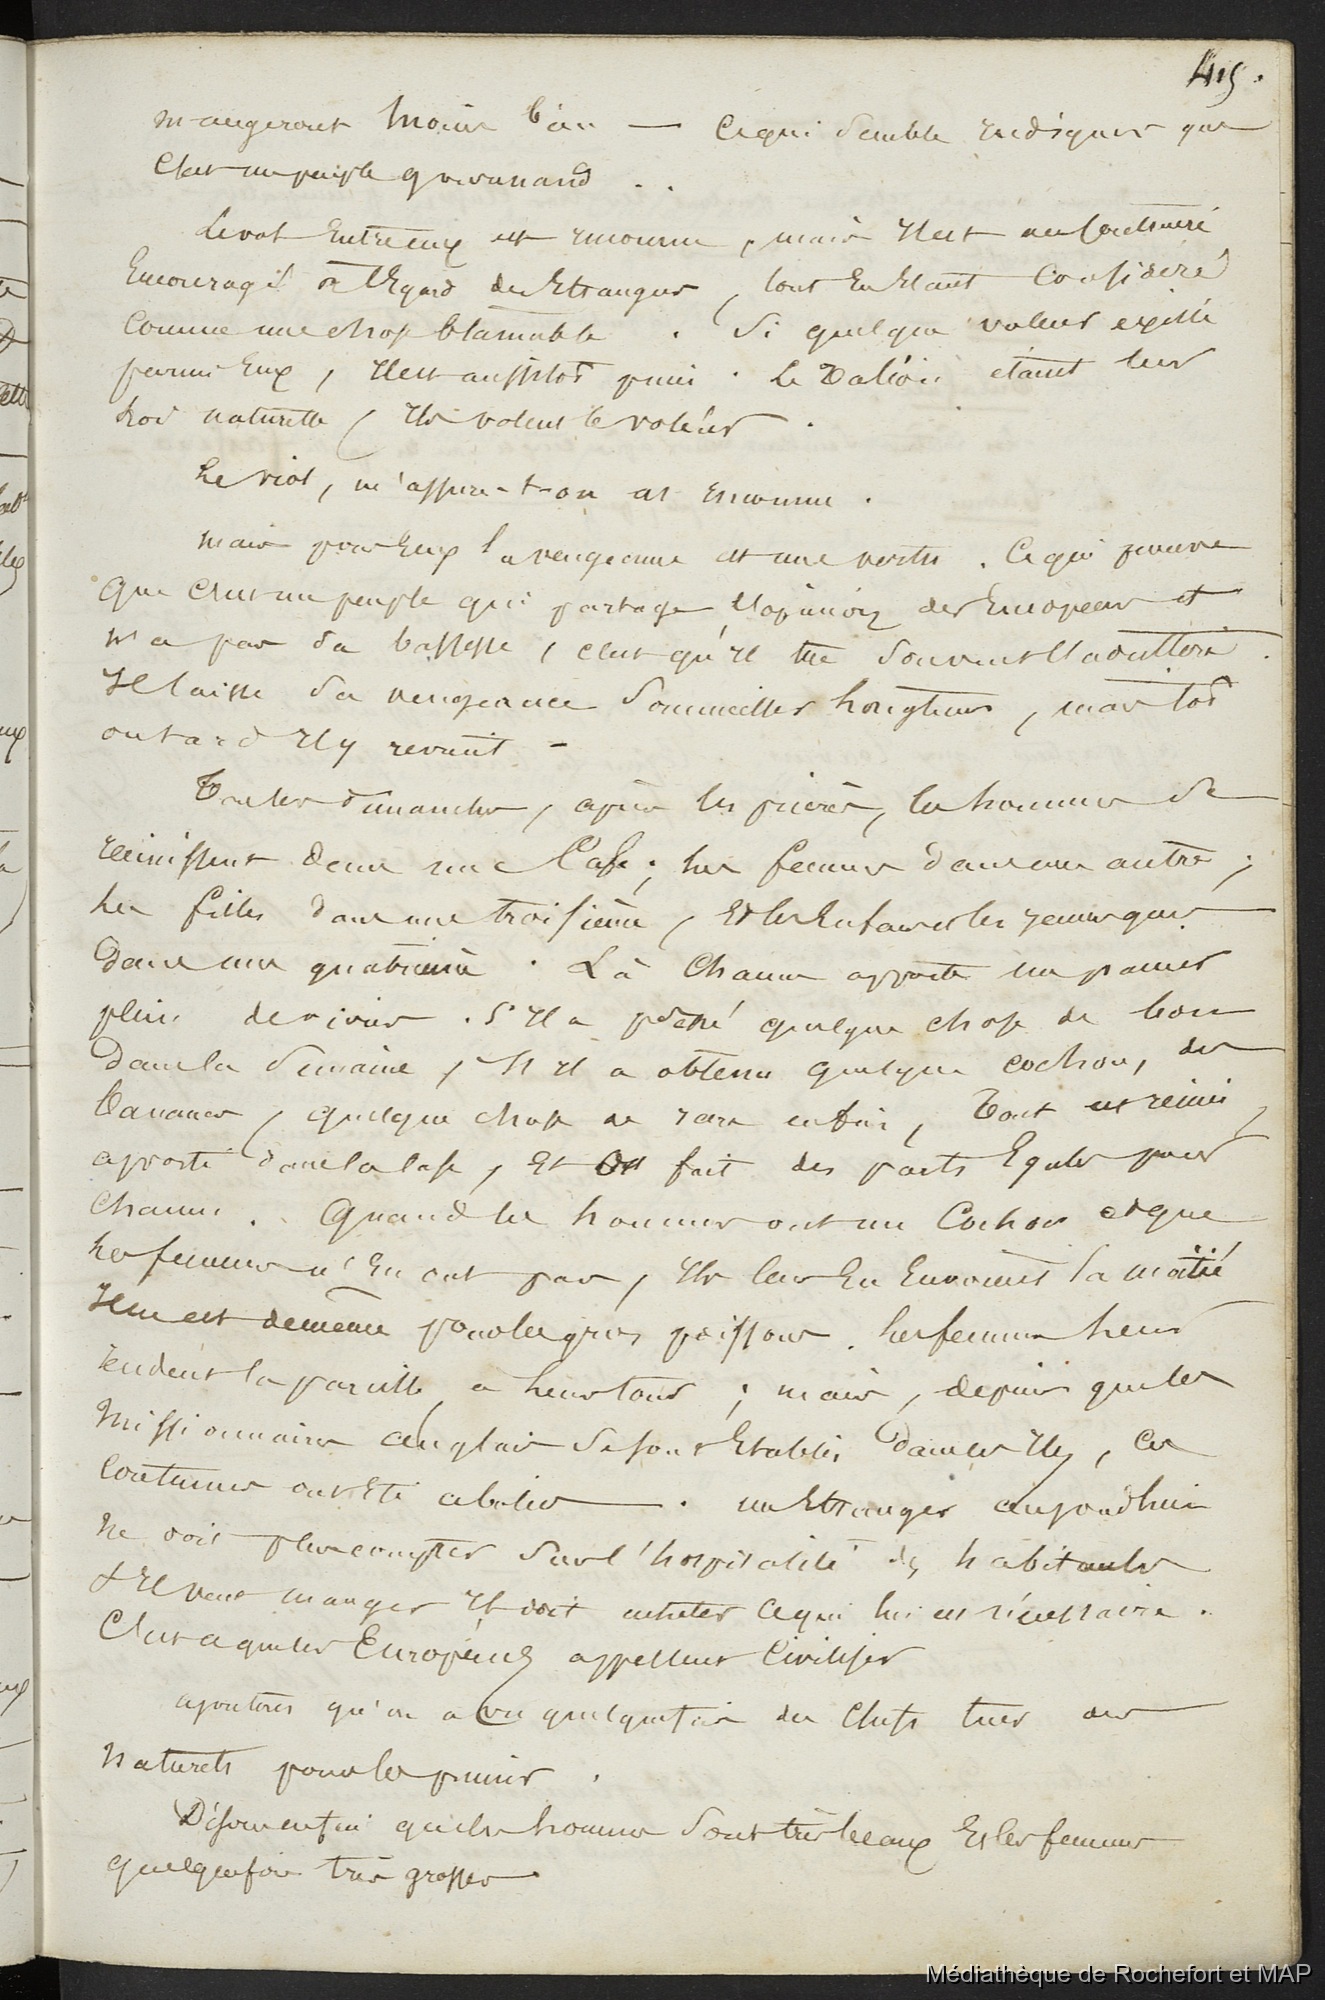 415.
mangeront moins bien — Cequi Semble indiquer que
C'est un peuple gourmand . .
Levol Entreeux est inconnu , mais Ilest
Encouragé à l'Egard des Etrangers , tout En Etant Considéré
Comme une chose blamable . Si quelque voleur existe
parmi Eux , Ilest aussitot puni . Le Talion étant leur
Loi naturelle , Ils volent le voleur .
Le viol , m'assure-t-on est inconnu .
mais pour Eux la vengeance est une vertu . Cequi prouve
Que C'est un peuple qui partage l'opinion des Européens et
n'a pas Sa bassesse , c'est qu'Il tue Souvent l'adultère .
Il laisse Sa vengeance Sommeiller Longtems , mais tot
outard Il y revient –
Tous les dimanches , après les prières , les hommes Se
réunissent dans une Case ; Les femmes dans une autre ;
Les filles dans une troisième , Et les Enfans et les
Dans une quatrième . Là Chacun apporte un panier
plein de vivres . S'Il a pêché quelque chose de bon
Dans la Semaine , S'Il a obtenu quelque cochon, des
bananes , quelque chose de rare enfin , Tout est réuni ,
aporté dans la Case , Et On fait des parts Egales pour
Chacun . Quand les hommes ont un Cochon et que
Les femmes n'En ont pas , Ils leur En Envoient la moitié
Ilen est demême pour les gros poissons . Les femmes Leur
rendent la pareille a Leur tour ; mais , depuis que les
Missionnaires anglais Se sont Etablis dans les Iles , Ces
Coutumes ont Eté abolies — . un Etranger aujourdhui
Ne doit plus compter Sur l'hospitalité des habitants
S'Il veut manger Il doit acheter Cequi lui est nécessaire .
C'est ce que les Européens appellent Civiliser
ajoutons qu'on a vu quelquefois des Chefs tuer des
Naturels pour les punir .
Disons enfin que les hommes Sont très beaux Et les femmes
quelquefois très grosses
Médiathèque de Rochefort et MAP